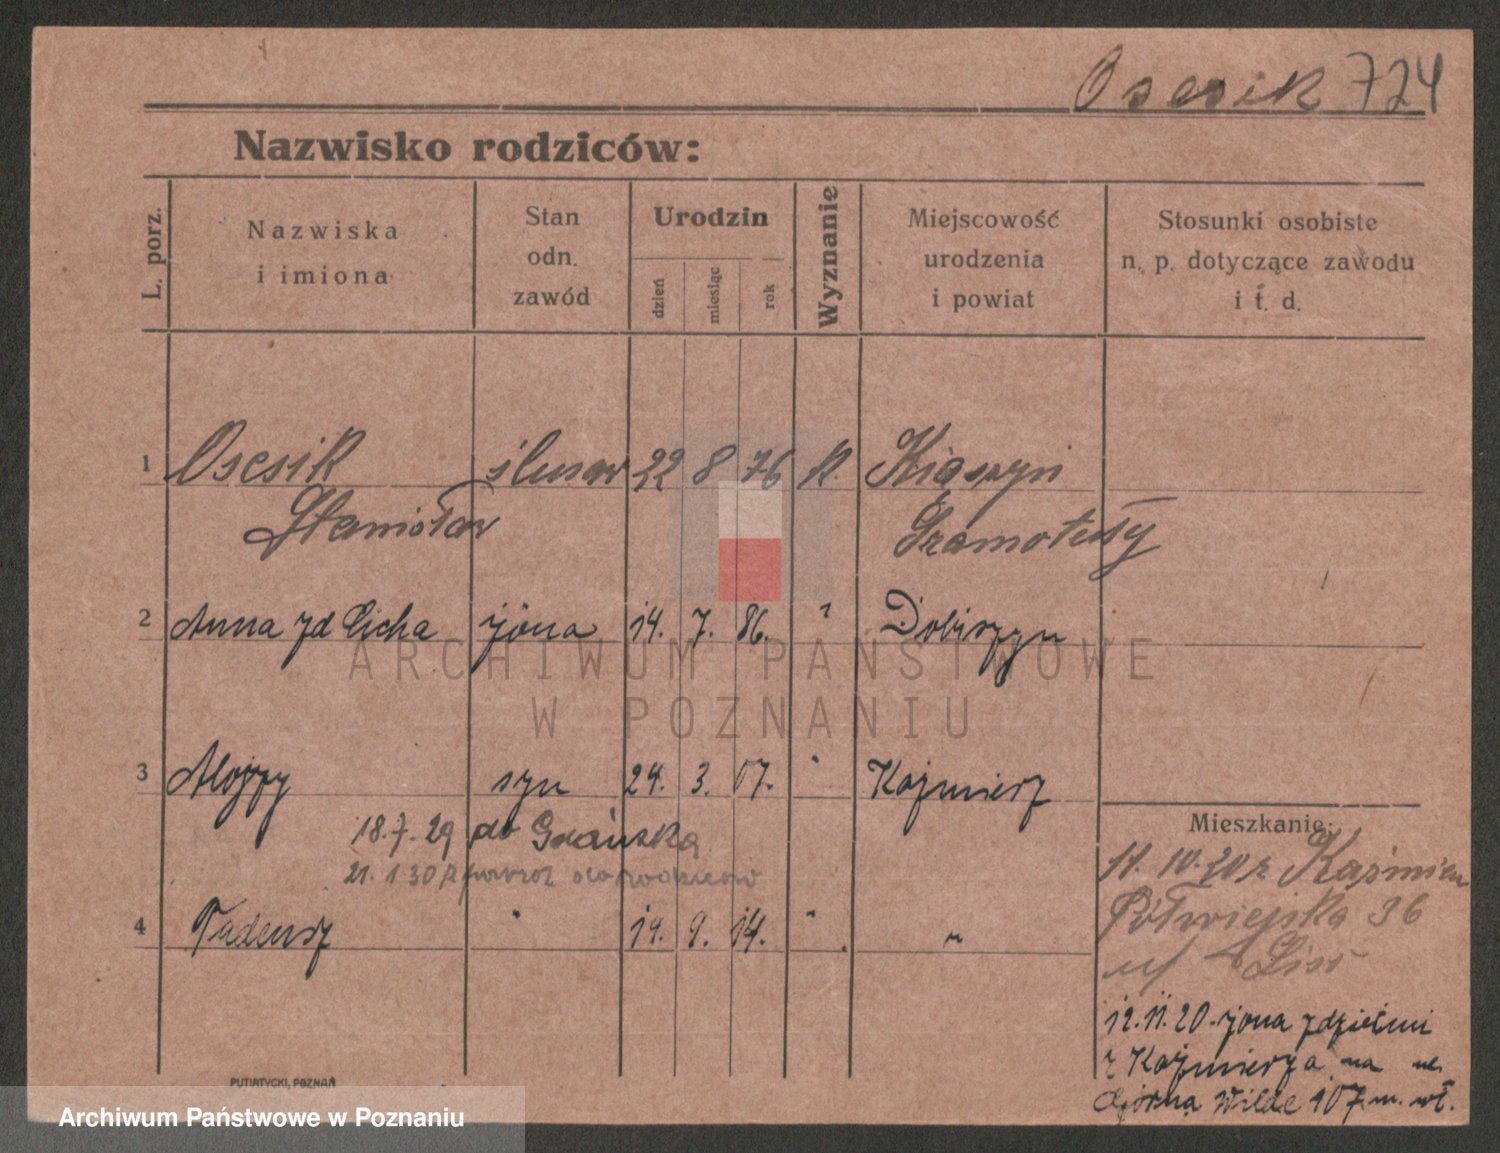 Osesik 724
Nazwisko rodziców:
L. porz.
Nazwiska
i imiona
Stan
odn.
zawód
Urodzin
dzień
miesiąc
rok
Wyznanie
Miejscowość
urodzenia
i powiat
Stosunki osobiste
n. p. dotyczące zawodu
i t. d.
1 Osesik ślusar 22 8 76 K.
Stanisław
2 Anna zd Cicha żona 14. 7. 86. " Dobiszyn
3 Alojzy syn 24. 3. 07. " Kaźmierz
18.7.29 do Gdańska
21.1.30 powrot do rodziców
4 Tadeusz " 19. 9. 14. " "
Mieszkanie:
11. 10. 20 z Kaźmierz
Półwiejska 36
12.11.20. żona zdziećmi
z Kaźmierza na ul.
Górna Wilde 107 m. wł.
PUTIATYCKI, POZNAŃ
ARCHIWUM PAŃSTWOWE
W POZNANIU
Archiwum Państwowe w Poznaniu